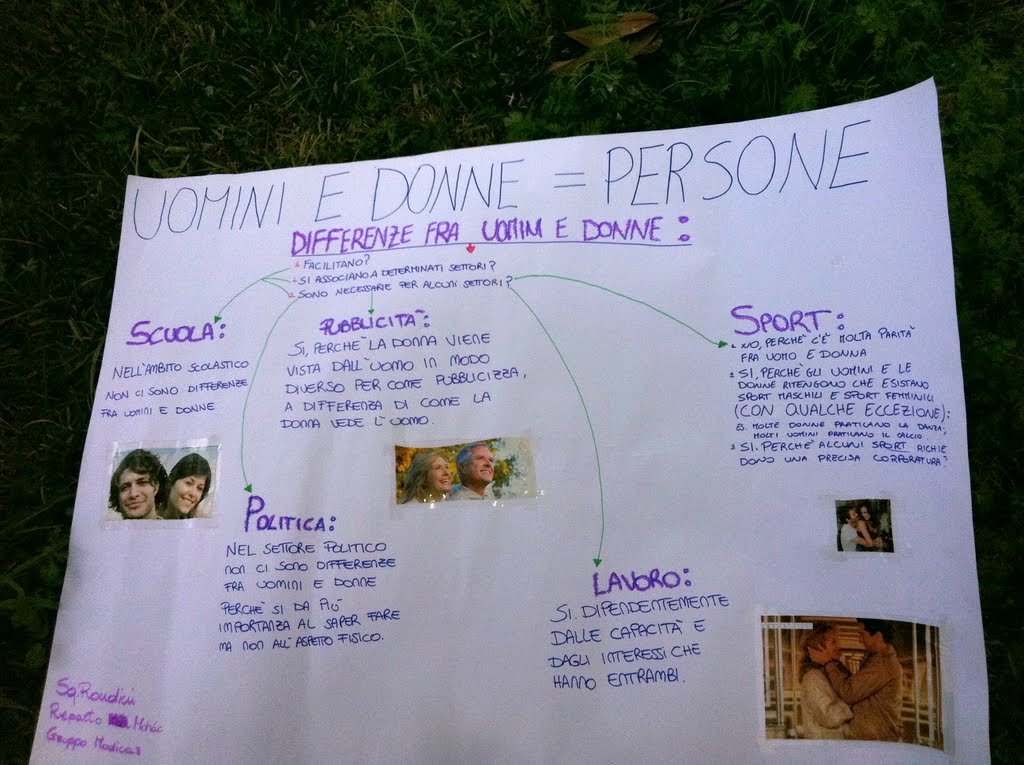 UOMINI E DONNE = PERSONE
DIFFERENZE FRA UOMINI E DONNE:
1. FACILITANO?
2. SI ASSOCIANO A DETERMINATI SETTORI?
3. SONO NECESSARIE PER ALCUNI SETTORI?
SCUOLA:
NELL'AMBITO SCOLASTICO
NON CI SONO DIFFERENZE
FRA UOMINI E DONNE
PUBBLICITÀ:
SI, PERCHÈ LA DONNA VIENE
VISTA DALL'UOMO IN MODO
DIVERSO PER COME PUBBLICIZZA,
A DIFFERENZA DI COME LA
DONNA VEDE L'UOMO.
SPORT:
1. NO, PERCHÈ C'È MOLTA PARITÀ
FRA UOMO E DONNA
2. SI, PERCHÈ GLI UOMINI E LE
DONNE RITENGONO CHE ESISTANO
SPORT MASCHILI E SPORT FEMMINILI
(CON QUALCHE ECCEZIONE):
ES. MOLTE DONNE PRATICANO LA DANZA,
MOLTI UOMINI PRATICANO IL CALCIO
3. SI. PERCHÈ ALCUNI SPORT RICHIE
DONO UNA PRECISA CORPORATURA.
POLITICA:
NEL SETTORE POLITICO
NON CI SONO DIFFERENZE
FRA UOMINI E DONNE
PERCHÈ SI DA PIÙ
IMPORTANZA AL SAPER FARE
MA NON ALL'ASPETTO FISICO.
LAVORO:
SI. DIPENDENTEMENTE
DALLE CAPACITÀ E
DAGLI INTERESSI CHE
HANNO ENTRAMBI.
Sq. Rondini
Reparto
Gruppo Modica